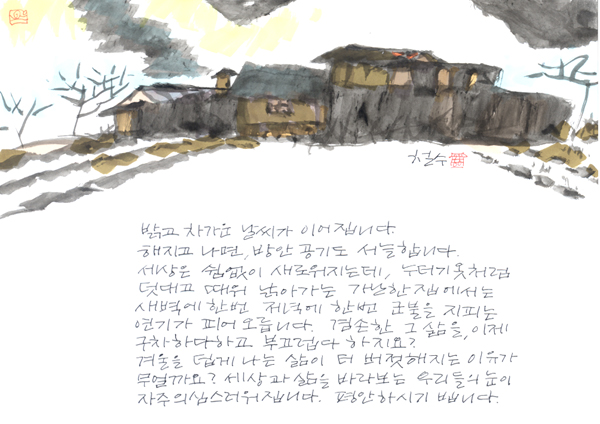 철수
밝고 차가운 날씨가 이어집니다.
해지고 나면, 방안 공기도 서늘합니다.
세상은 쉼없이 새로워지는데, 누더기옷처럼
덧대고 때워 낡아가는 가난한 집에서는
새벽에 한번 저녁에 한번 군불을 지피는
연기가 피어 오릅니다. 겸손한 그 삶을, 이제
구차하다하고 부끄럽다 하지요?
겨울을 덥게 나는 삶이 더 버젓해지는 이유가
무얼까요? 세상과 삶을 바라보는 우리들의 눈이
자주 의심스러워집니다. 평안하시기 빕니다.